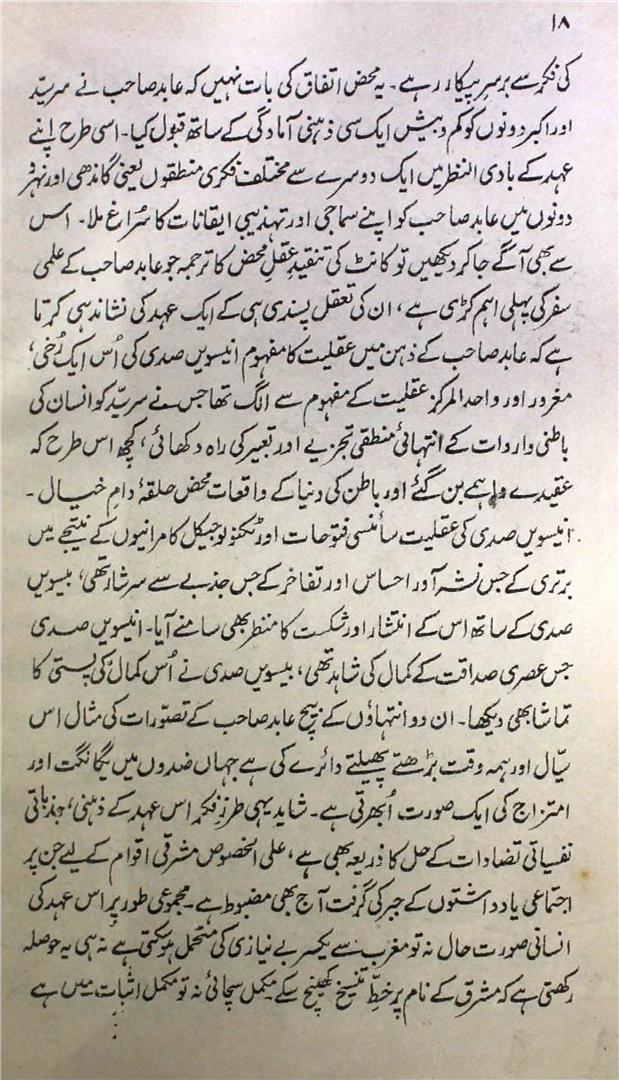 ۱۸
کی فکر سے برسرِ پیکار رہے۔ یہ محض اتفاق کی بات نہیں کہ عابد صاحب نے سرسیّد
اور اکبر دونوں کو کم و بیش ایک سی ذہنی آمادگی کے ساتھ قبول کیا۔ اسی طرح اپنے
عہد کے بادی النظر میں ایک دوسرے سے مختلف فکری منطقوں یعنی گاندھی اور نہرو
دونوں میں عابد صاحب کو اپنے سماجی اور تہذیبی ایقانات کا سُراغ ملا۔ اس
سے بھی آگے جا کر دیکھیں تو کانٹ کی تنقیدِ عقلِ محض کا ترجمہ جو عابد صاحب کے علمی
سفر کی پہلی اہم کڑی ہے، ان کی تعقل پسندی ہی کے ایک عہد کی نشاندہی کرتا
ہے کہ عابد صاحب کے ذہن میں عقلیت کا مفہوم انیسویں صدی کی اُس ایک رُخی،
مغرور اور واحد المرکز عقلیت کے مفہوم سے الگ تھا جس نے سرسیّد کو انسان کی
باطنی واردات کے انتہائی منطقی تجزیے اور تعبیر کی راہ دکھائی، کچھ اس طرح کہ
عقیدے واہمے بن گئے اور باطن کی دنیا کے واقعات محض حلقۂ دامِ خیال۔
انیسویں صدی کی عقلیت سائنسی فتوحات اور ٹکنولوجیکل کامرانیوں کے نتیجے میں
برتری کے جس نشہ آور احساس اور تفاخر کے جس جذبے سے سرشار تھی، بیسویں
صدی کے ساتھ اس کے انتشار اور شکست کا منظر بھی سامنے آیا۔ انیسویں صدی
جس عصری صداقت کے کمال کی شاہد تھی، بیسویں صدی نے اُس کمال کی پستی کا
تماشا بھی دیکھا۔ ان دو انتہاؤں کے بیچ عابد صاحب کے تصوّرات کی مثال اس
سیّال اور ہمہ وقت بڑھتے پھیلتے دائرے کی ہے جہاں ضدوں میں یگانگت اور
امتزاج کی ایک صورت اُبھرتی ہے۔ شاید یہی طرزِ فکر اس عہد کے ذہنی، جذباتی
نفسیاتی تضادات کے حل کا ذریعہ بھی ہے، علی الخصوص مشرقی اقوام کے لیے جن پر
اجتماعی یادداشتوں کے جبر کی گرفت آج بھی مضبوط ہے۔ مجموعی طور پر اس عہد کی
انسانی صورت حال نہ تو مغرب سے یکسر بے نیازی کی متحمل ہو سکتی ہے نہ ہی یہ حوصلہ
رکھتی ہے کہ مشرق کے نام پر خطِّ تنسیخ کھینچ سکے۔ مکمل سچائی نہ تو مکمل اثبات میں ہے